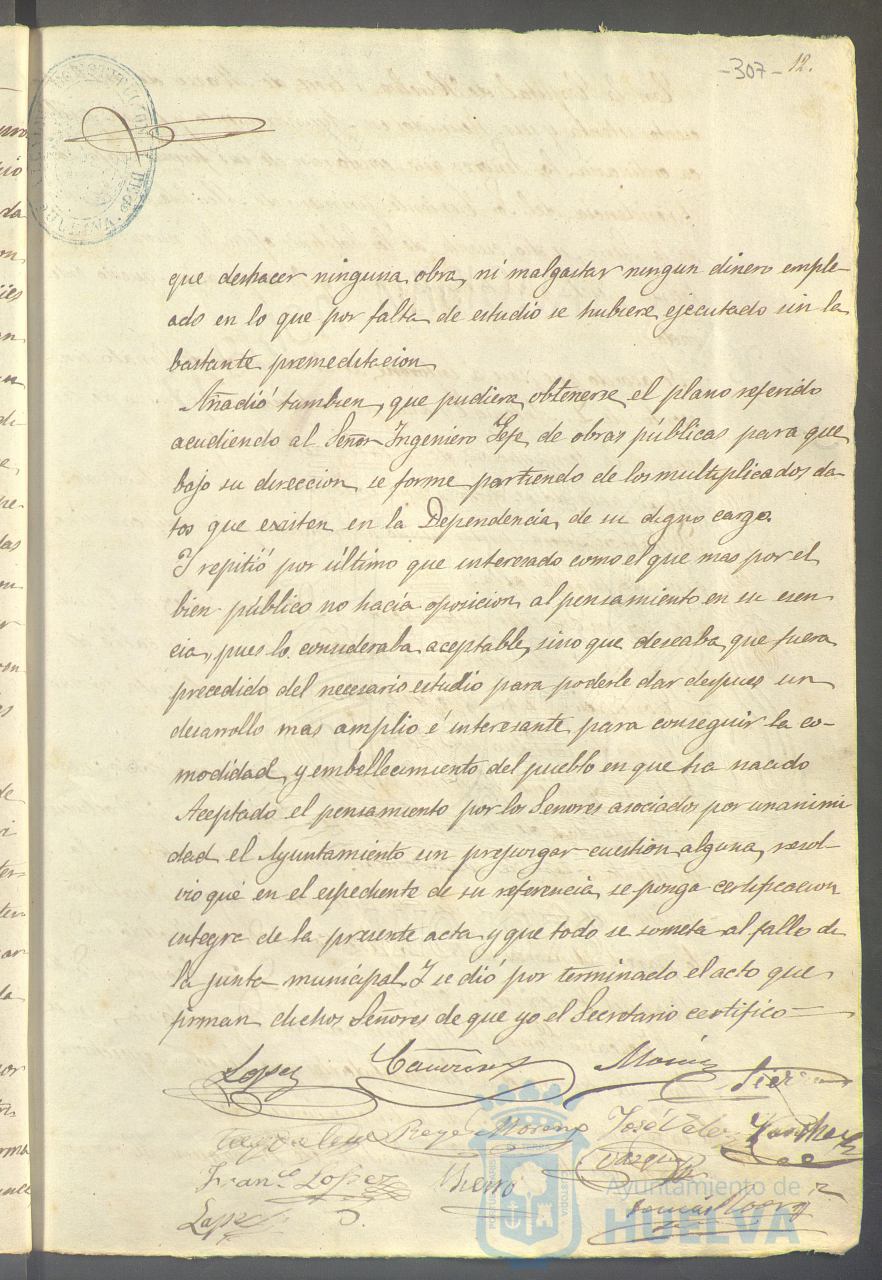 -307- 12.
que deshacer ninguna obra, ni malgastar ningun dinero emple-
ado en lo que por falta de estudió se hubiere ejecutado sin la
bastante premeditacion
Añadió tambien, que pudiera obtenerse el plano referido
acudiendo al Señor Ingeniero Gefe de obras públicas para que
bajo su direccion se forme partiendo de los multiplicados da-
tos que existen en la Dependencia de su digno cargo.
Y repitió por último que interesado como el que mas por el
bien público no hacía oposicion al pensamiento en su esen
cia, pues lo consideraba aceptable, sino que deseaba que fuera
precedido del necesario estudio para poderle dar despues un
desarrollo mas amplio é interesante para conseguir la co-
modidad y embellecimiento del pueblo en que ha nacido
Aceptado el pensamiento por los Señores asociados por unanimi
dad el Ayuntamiento sin prejuzgar cuestion alguna, resol-
vio que en el espediente de su referencia se ponga certificacion
integra de la presente acta y que todo se someta al fallo de
la junta municipal. Y se dió por terminado el acto que
firman dichos Señores de que yo el Secretario certifico=
Lopez
Reyes Moreno José
Vazquez
Franco Lopez Hierro
Lopez Tomas
Ayuntamiento de
HUELVA